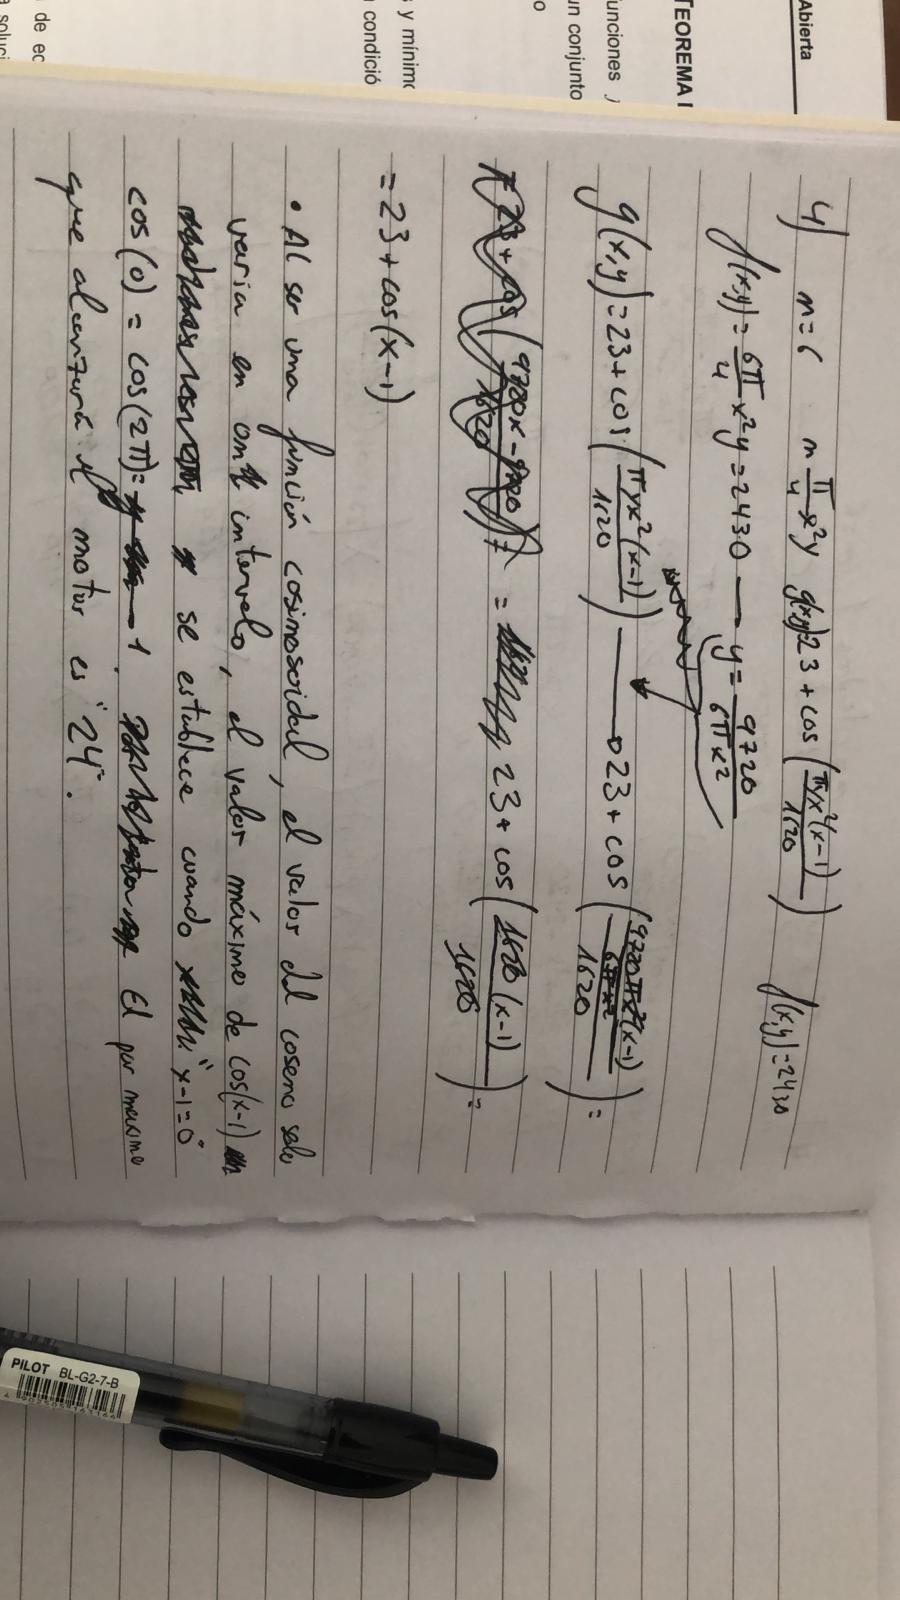 Abierta
TEOREMA
funciones
un conjunto
o
s y mínimo
condició
de ec
soluci
4) n=6 n π/4 x²y g(x,y)=23+cos(πyx²(x-1)/1620) f(x,y)=2430
f(x,y)=6π/4 x²y=2430 — y=9720/6πx²
g(x,y)=23+cos(πyx²(x-1)/1620) → 23+cos(9720πx²(x-1)/6πx²/1620)=
= 23+cos(1620(x-1)/1620)=
=23+cos(x-1)
• Al ser una función cosinosoidal, el valor del coseno solo
varia en intervalo, el valor máximo de cos(x-1)
se establece cuando "x-1=0"
cos(0)=cos(2π)= 1. El par maximo
que alcanzará motor es "24".
PILOT BL-G2-7-B